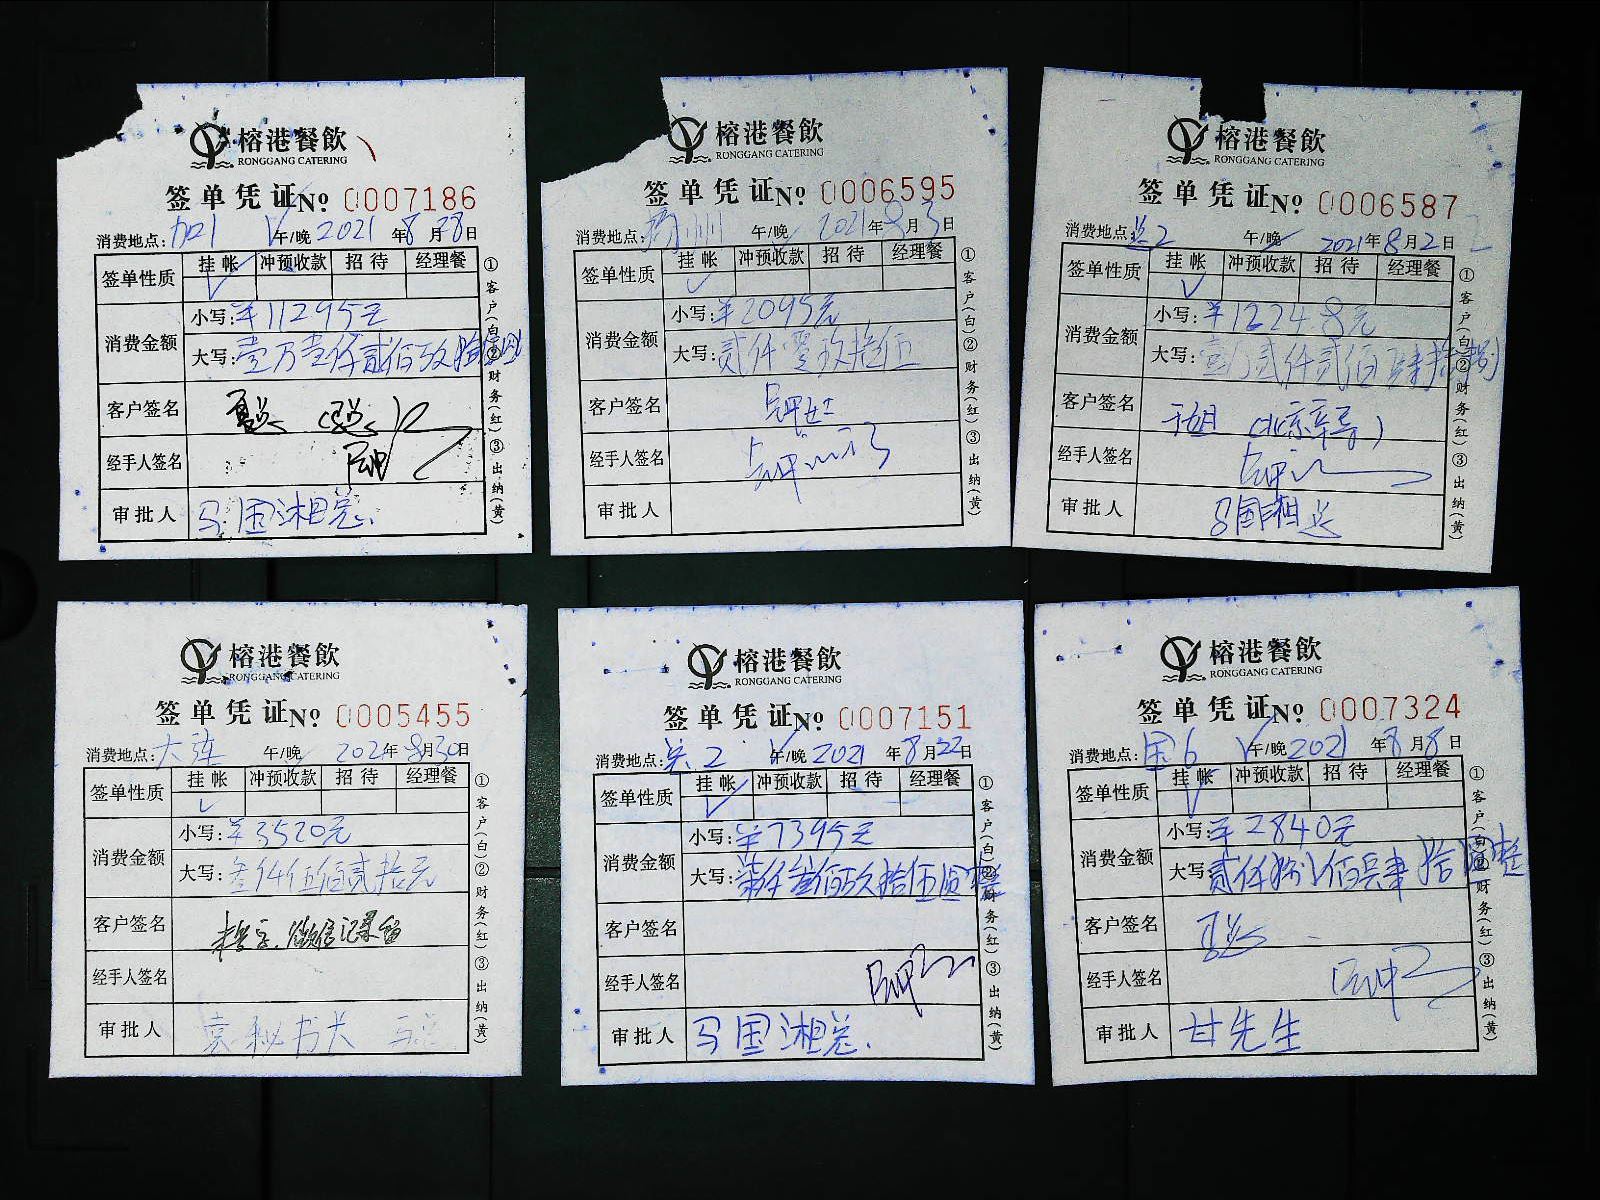 榕港餐飲
RONGGANG CATERING
签单凭证No 0007186
消费地点: 加1 午/晚 2021年8月28日
签单性质 挂帐 冲预收款 招待 经理餐
消费金额 小写:￥11295元
大写:壹万壹仟贰佰玖拾伍圆
客户签名
经手人签名
审批人 马国湘总
①客户(白)②财务(红)③出纳(黄)
榕港餐飲
RONGGANG CATERING
签单凭证No 0006595
消费地点: 午/晚 2021年8月3日
签单性质 挂帐 冲预收款 招待 经理餐
消费金额 小写:￥2095元
大写:贰仟零玖拾伍
客户签名
经手人签名
审批人
①客户(白)②财务(红)③出纳(黄)
榕港餐飲
RONGGANG CATERING
签单凭证No 0006587
消费地点: 午/晚 2021年8月2日
签单性质 挂帐 冲预收款 招待 经理餐
消费金额 小写:￥12248元
大写:壹万贰仟贰佰肆拾捌
客户签名
经手人签名
审批人 马国湘总
①客户(白)②财务(红)③出纳(黄)
榕港餐飲
RONGGANG CATERING
签单凭证No 0005455
消费地点: 大连 午/晚 2021年8月30日
签单性质 挂帐 冲预收款 招待 经理餐
消费金额 小写:￥3520元
大写:叁仟伍佰贰拾元
客户签名 未签字.微信记录留
经手人签名
审批人 袁秘书长 马总
①客户(白)②财务(红)③出纳(黄)
榕港餐飲
RONGGANG CATERING
签单凭证No 0007151
消费地点: 午/晚 2021年8月22日
签单性质 挂帐 冲预收款 招待 经理餐
消费金额 小写:￥7395元
大写:柒仟叁佰玖拾伍圆整
客户签名
经手人签名
审批人 马国湘总.
①客户(白)②财务(红)③出纳(黄)
榕港餐飲
RONGGANG CATERING
签单凭证No 0007324
消费地点: 国6 午/晚 2021年8月8日
签单性质 挂帐 冲预收款 招待 经理餐
消费金额 小写:￥2840元
大写:贰仟捌佰肆拾圆整
客户签名
经手人签名
审批人 甘先生
①客户(白)②财务(红)③出纳(黄)